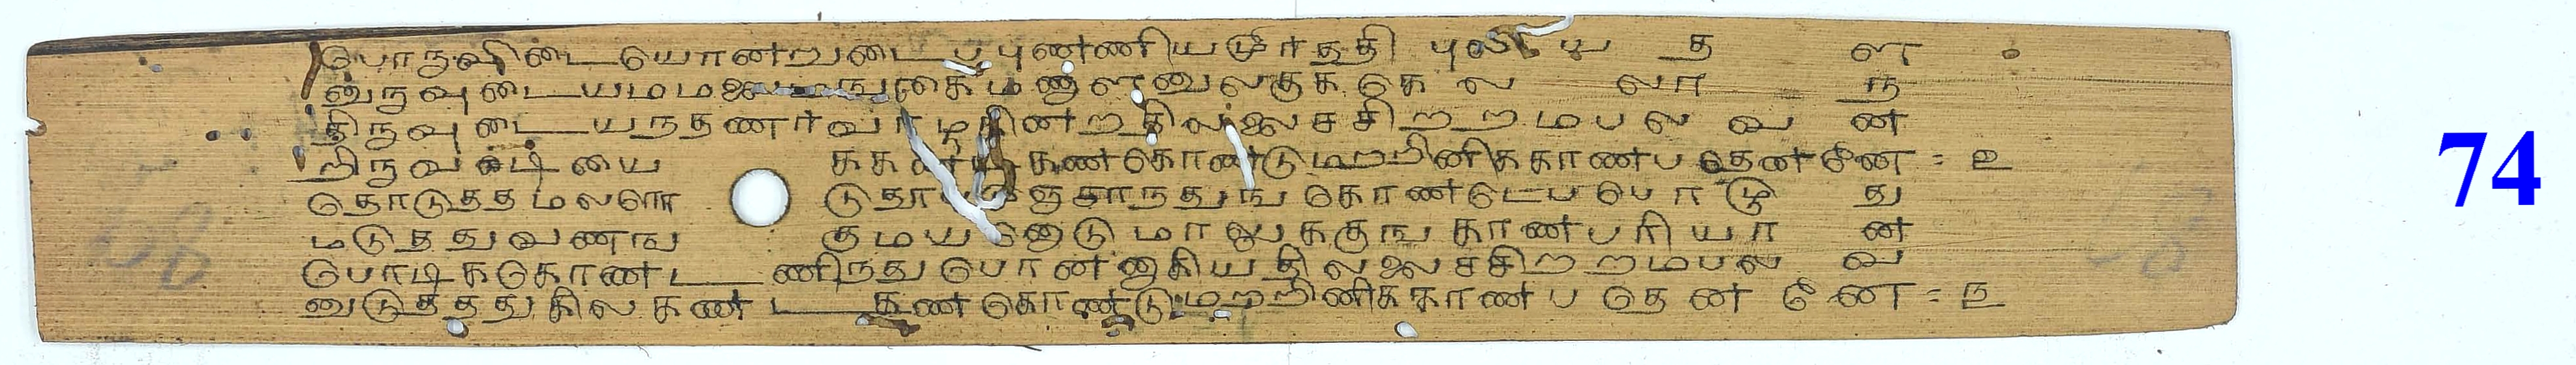 பொருவிடையொனறுடைபபுணணியமூரததி புலிய த ள
னுருவுடையமமலைமஙகைமணாளனுலகுககெ ல லா ந
திருவுடையநதணரவாழகினறதிலலைசசிறறமபல வ ன
றிருவடியை ககணடகணகொணடுமறறினிககாணப தெனனே = ௨
தொடுததமலரொ டுதூபமுஞசாநதுங கொணடெபபொழு து
மடுததுவணங குமயனொடுமாலுககுங காணபரியா ன
பொடிககொணடணிநதுபொனனாகியதிலலைசசிறறமபல வ
னுடுதததுகிலகணடகணகொணடுமறறினிககாணப தென னே = ௩